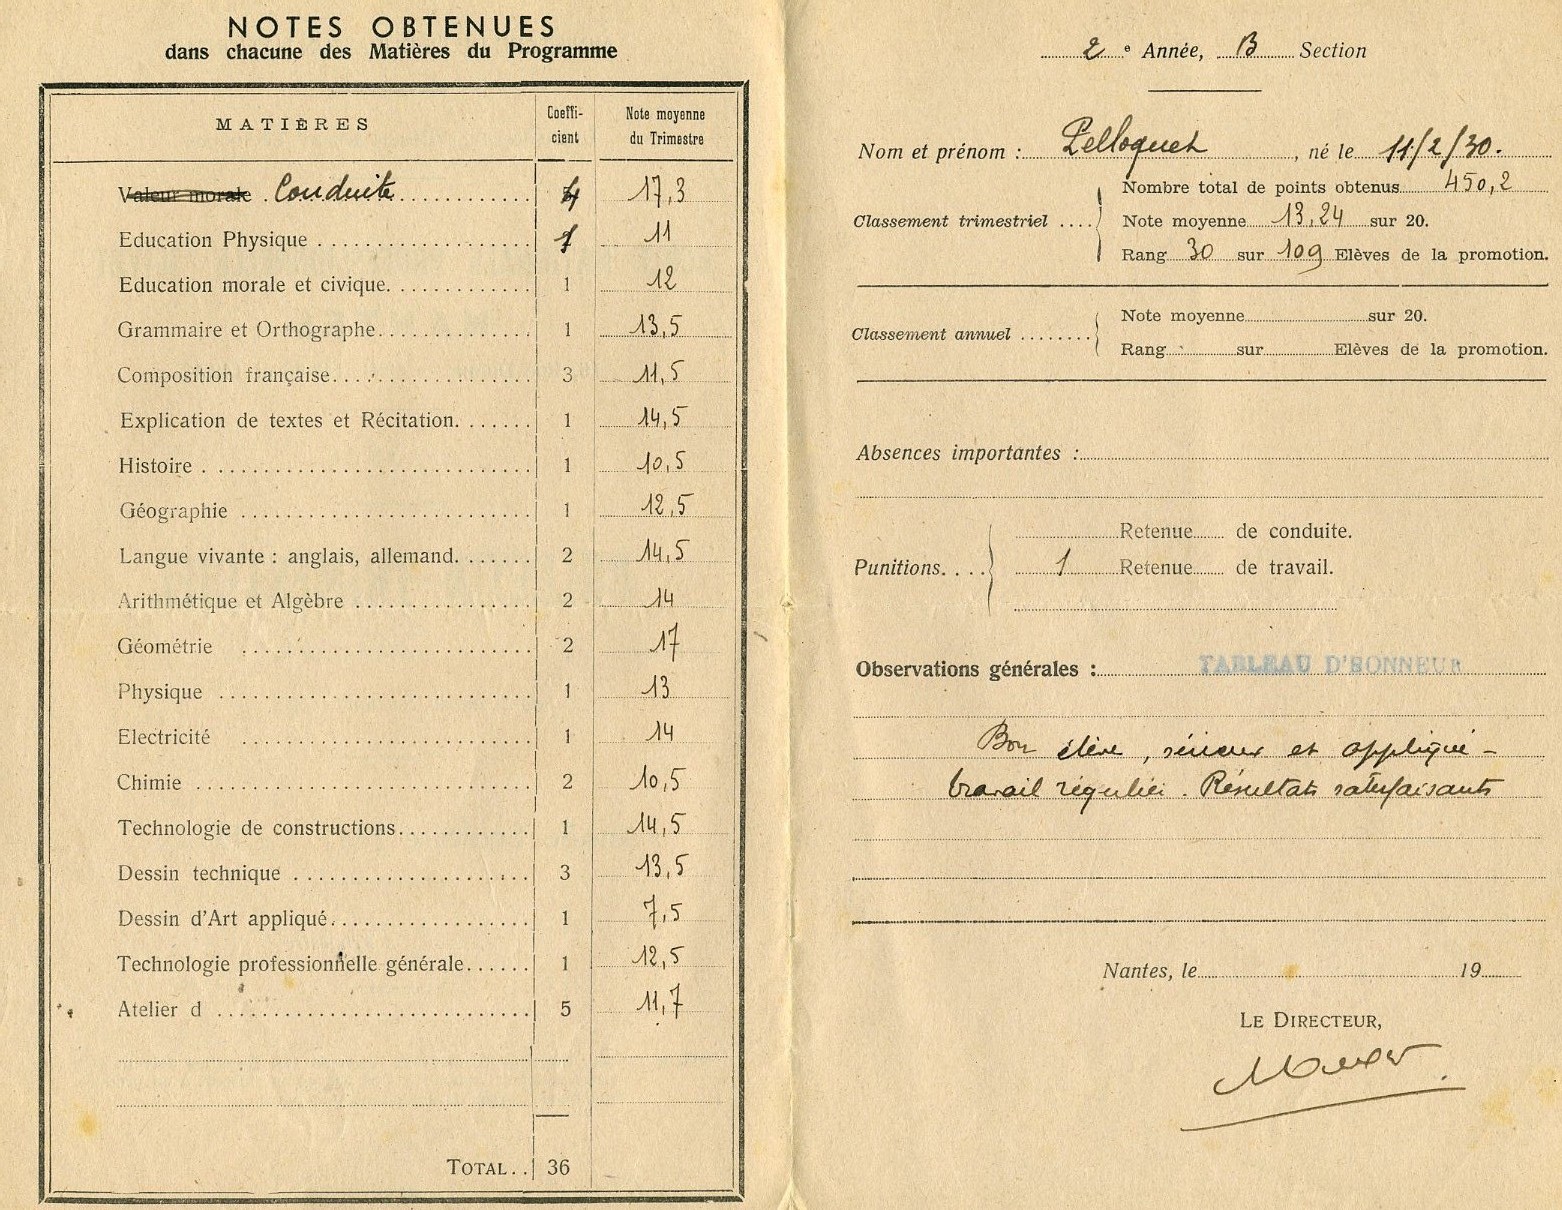 NOTES OBTENUES
dans chacune des Matières du Programme
MATIÈRES Coeffi-cient Note moyenne du Trimestre
Valeur morale Conduite 4 17,3
Education Physique 1 11
Education morale et civique 1 12
Grammaire et Orthographe 1 13,5
Composition française 3 11,5
Explication de textes et Récitation 1 14,5
Histoire 1 10,5
Géographie 1 12,5
Langue vivante : anglais, allemand 2 14,5
Arithmétique et Algèbre 2 14
Géométrie 2 17
Physique 1 13
Electricité 1 14
Chimie 2 10,5
Technologie de constructions 1 14,5
Dessin technique 3 13,5
Dessin d'Art appliqué 1 7,5
Technologie professionnelle générale 1 12,5
Atelier d 5 11,7
TOTAL 36
2e Année, B Section
Nom et prénom : Pelloquet, né le 11/2/30.
Classement trimestriel
Nombre total de points obtenus 450,2
Note moyenne 13,24 sur 20.
Rang 30 sur 109 Elèves de la promotion.
Classement annuel
Note moyenne sur 20.
Rang sur Elèves de la promotion.
Absences importantes :
Punitions
Retenue de conduite.
1 Retenue de travail.
Observations générales : TABLEAU D'HONNEUR
Bon élève, sérieux et appliqué -
travail régulier. Résultats satisfaisants
Nantes, le 19
LE DIRECTEUR,